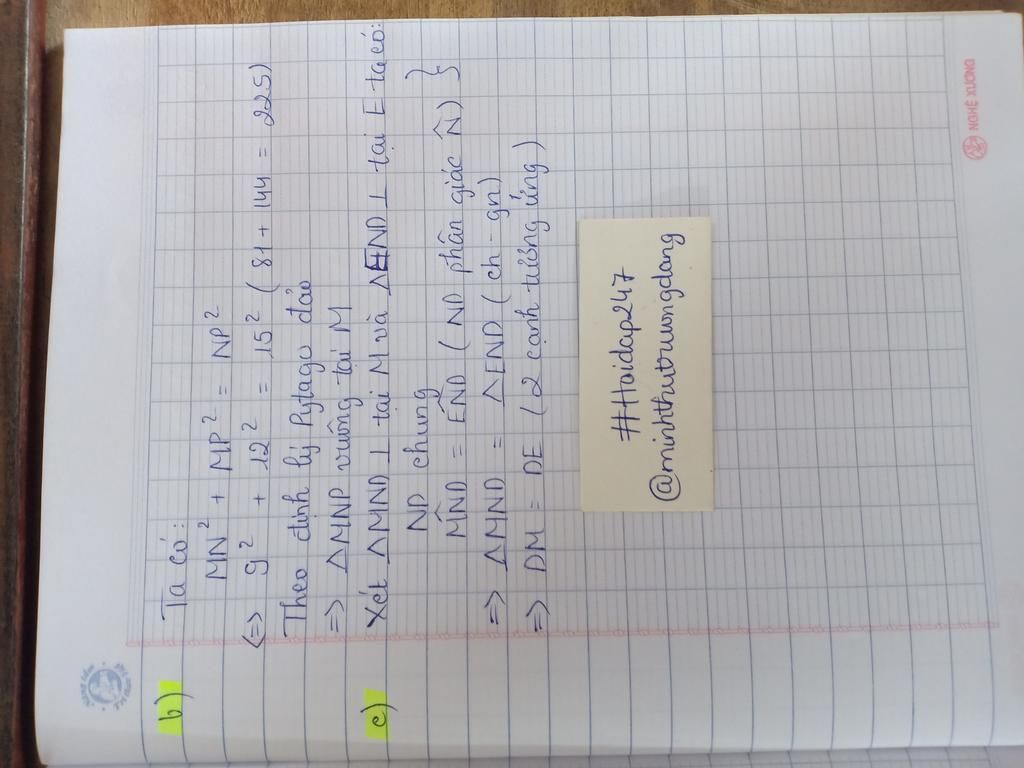 b) Ta có:
MN² + MP² = NP²
(=> 9² + 12² = 15² (81 + 144 = 225)
Theo định lý Pytago đảo
=> ΔMNP vuông tại M
c) Xét ΔMND ⊥ tại M và ΔEND ⊥ tại E ta có:
ND chung
MN̂D = EN̂D (ND phân giác N̂) }
=> ΔMND = ΔEND (ch-gn)
=> DM = DE (2 cạnh tương ứng)
#Hoidap247
@minhthutruongdang
NGHỆ XƯƠNG